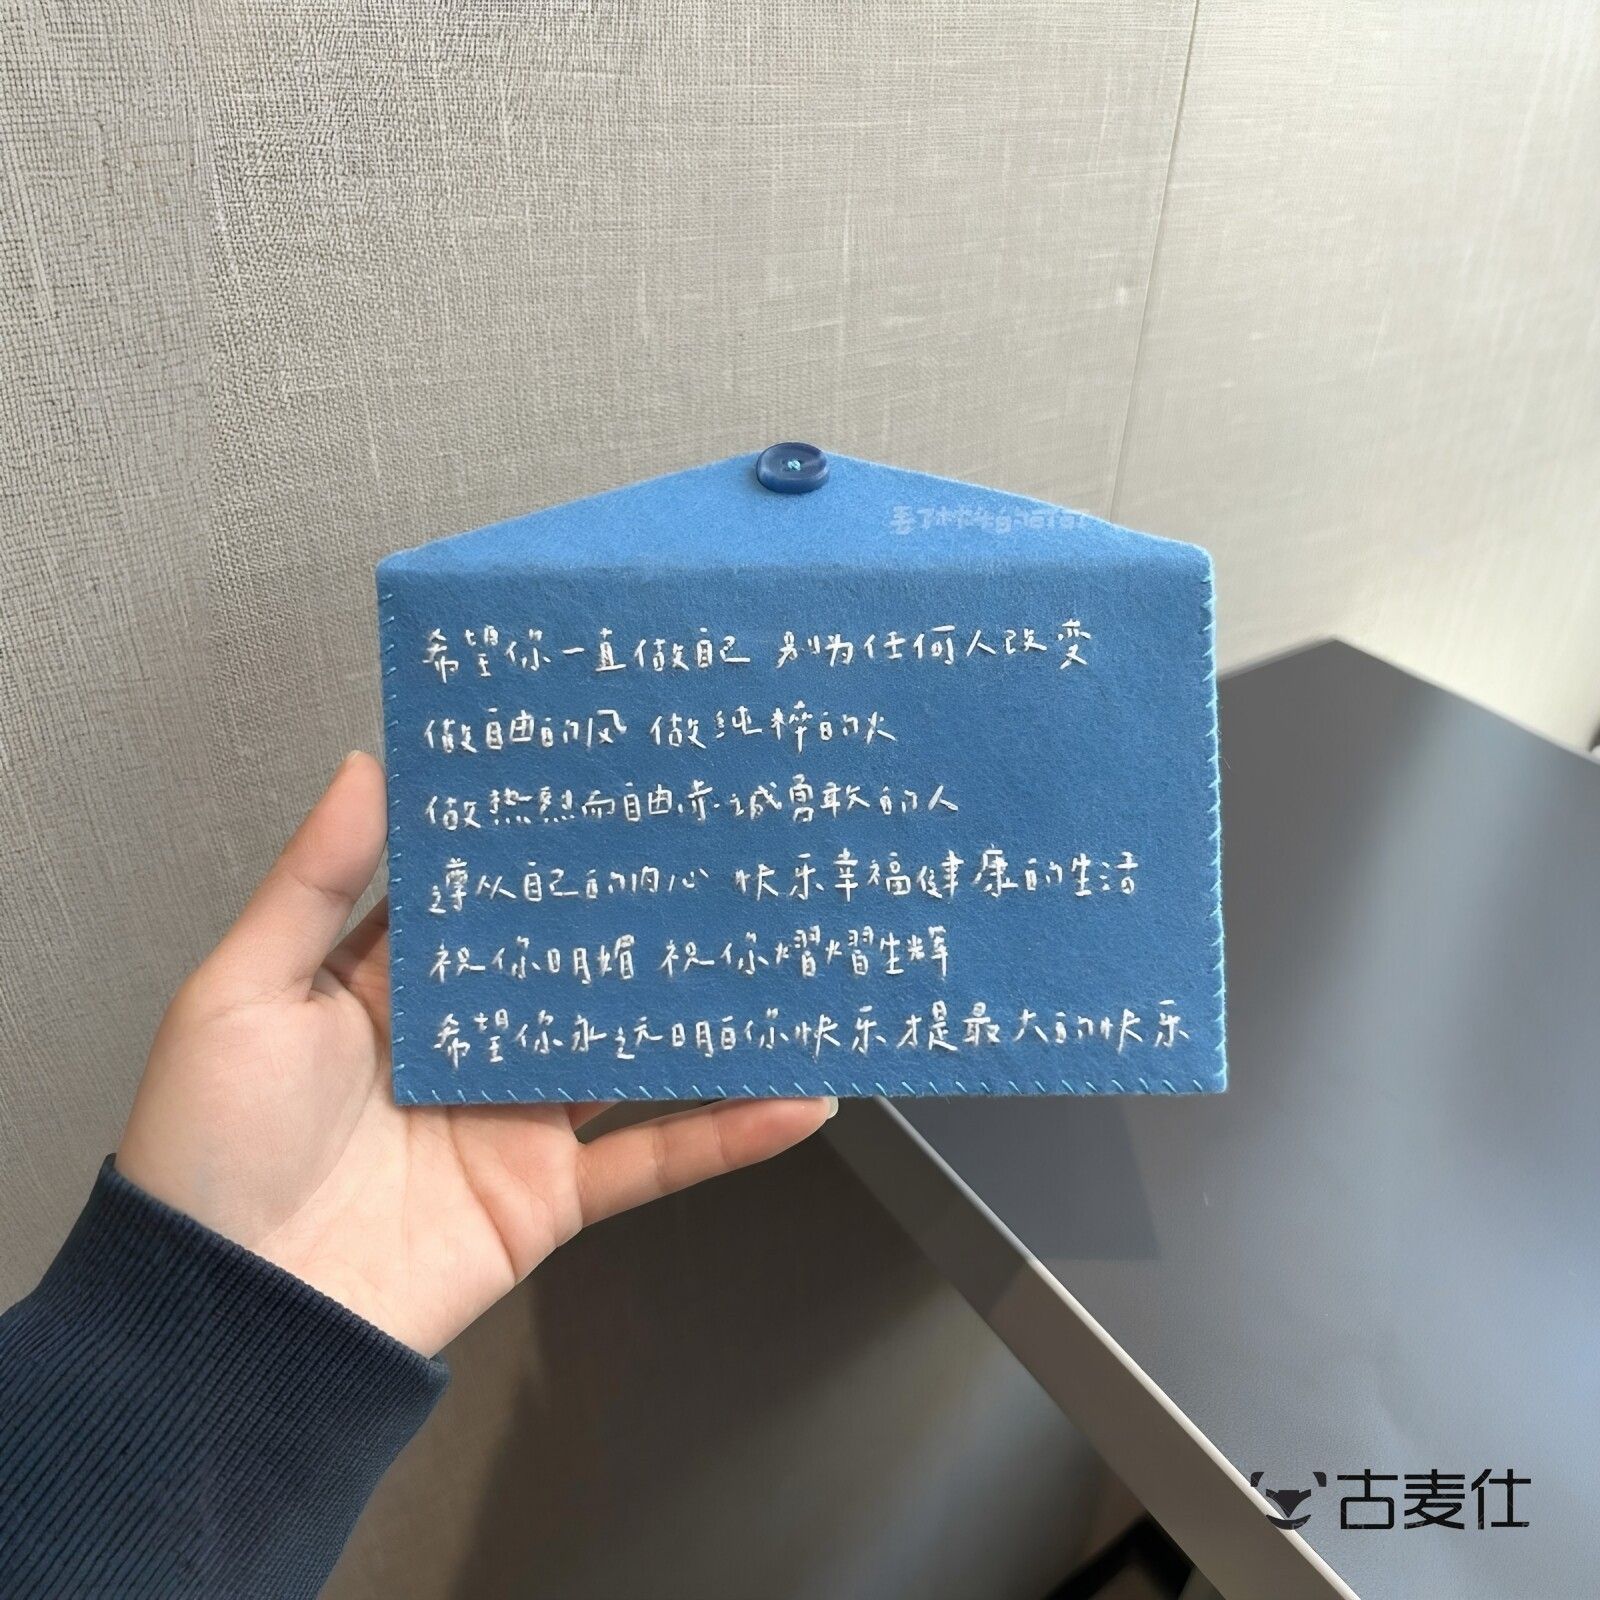 希望你一直做自己 别为任何人改变
做自由的风 做纯粹的火
做热烈而自由赤诚勇敢的人
遵从自己的内心 快乐幸福健康的生活
祝你明媚 祝你熠熠生辉
希望你永远明白你快乐才是最大的快乐
古麦仕